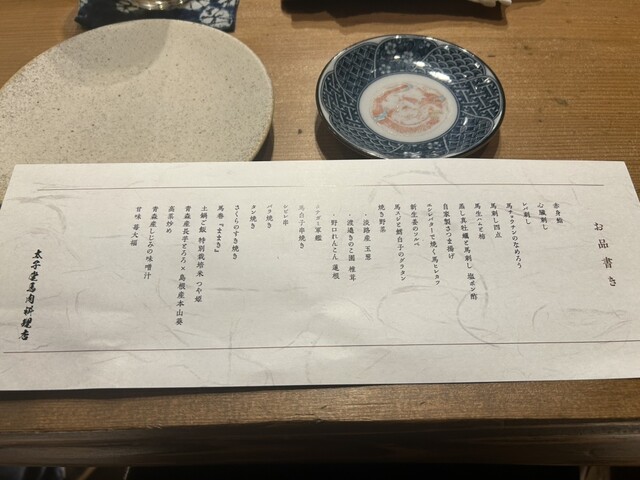 お品書き
赤身鮨
心臓刺し
レバ刺し
馬チョクチンのなめろう
馬刺し四点
馬生ハムと柿
蒸し真牡蠣と馬刺し 塩ポン酢
自家製さつま揚げ
新生姜のソルベ
エシレバターで焼く馬ヒレカツ
馬スジと鱈白子のグラタン
焼き野菜
・淡路産 玉葱
・渡邉きのこ園 椎茸
・野口れんこん 蓮根
軍艦
馬白子串焼き
シビレ串
バラ焼き
タン焼き
さくらのすき焼き
馬巻『ままき』
土鍋ご飯 特別栽培米 つや姫
青森産長芋とろろ×島根産本山葵
高菜炒め
青森産しじみの味噌汁
甘味 苺大福
太子堂馬肉料理店